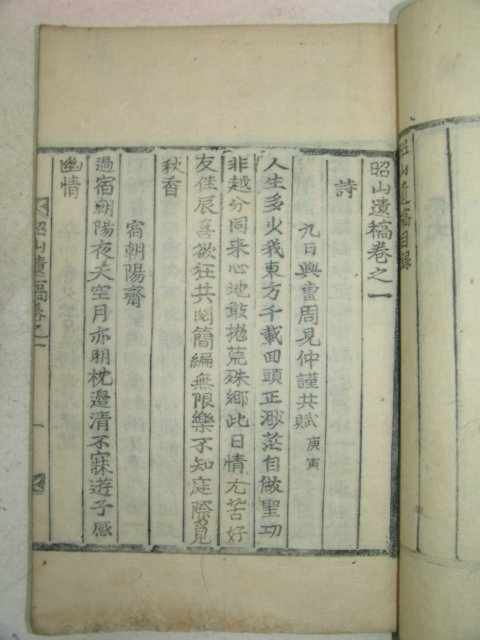 昭山遺稿卷之一
詩
九日與曺周見仲謹共賦 庚寅
人生多火我東方千載回頭正渺茫自做聖功
非越分同来心地敢抛荒殊鄕此日情尤苦好
友佳辰喜欲狂共閱簡編無限樂不知庭際覓
秋香
宿朝陽齋
過宿朝陽夜天空月亦明枕邉清不寐遊子感
幽情
昭山遺稿卷之一
昭山遺稿目録